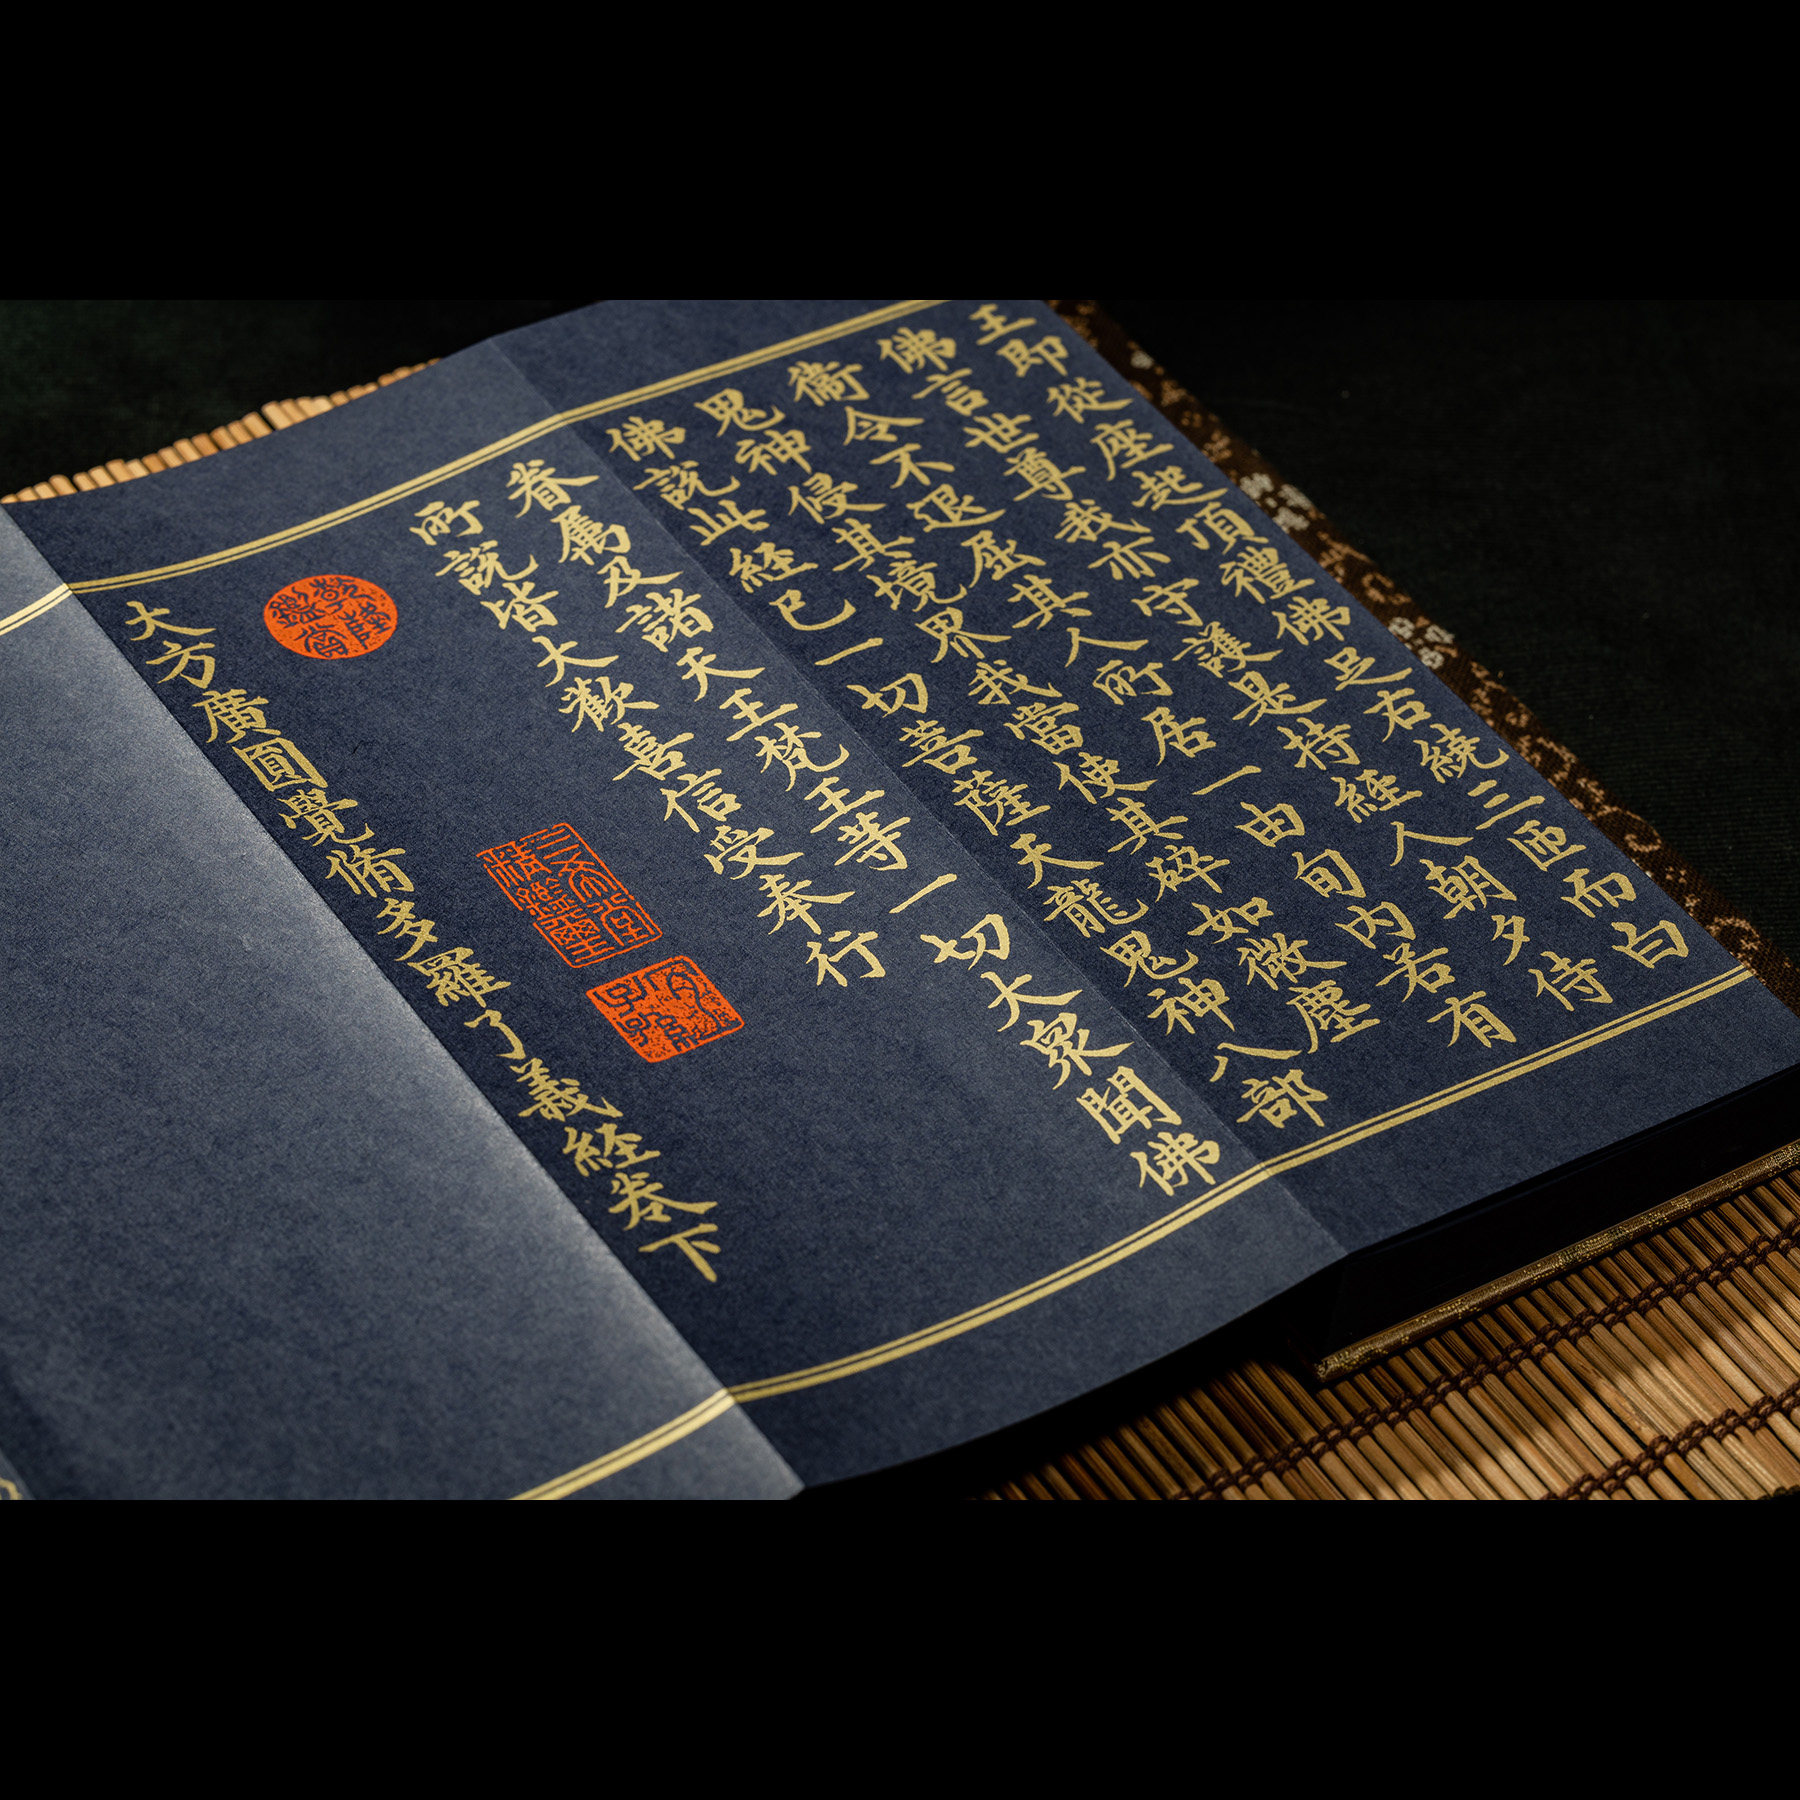 王即從座起頂禮佛足右繞三匝而白
佛言世尊我亦守護是持経人朝夕侍
衞令不退屈其人所居一由旬内若有
鬼神侵其境界我當使其碎如微塵
佛説此経已一切菩薩天龍鬼神八部
眷属及諸天王梵王等一切大衆聞佛
所説皆大歡喜信受奉行
三希堂精鑑璽
乾隆鑑賞
大方廣圓覺脩多羅了義経卷下